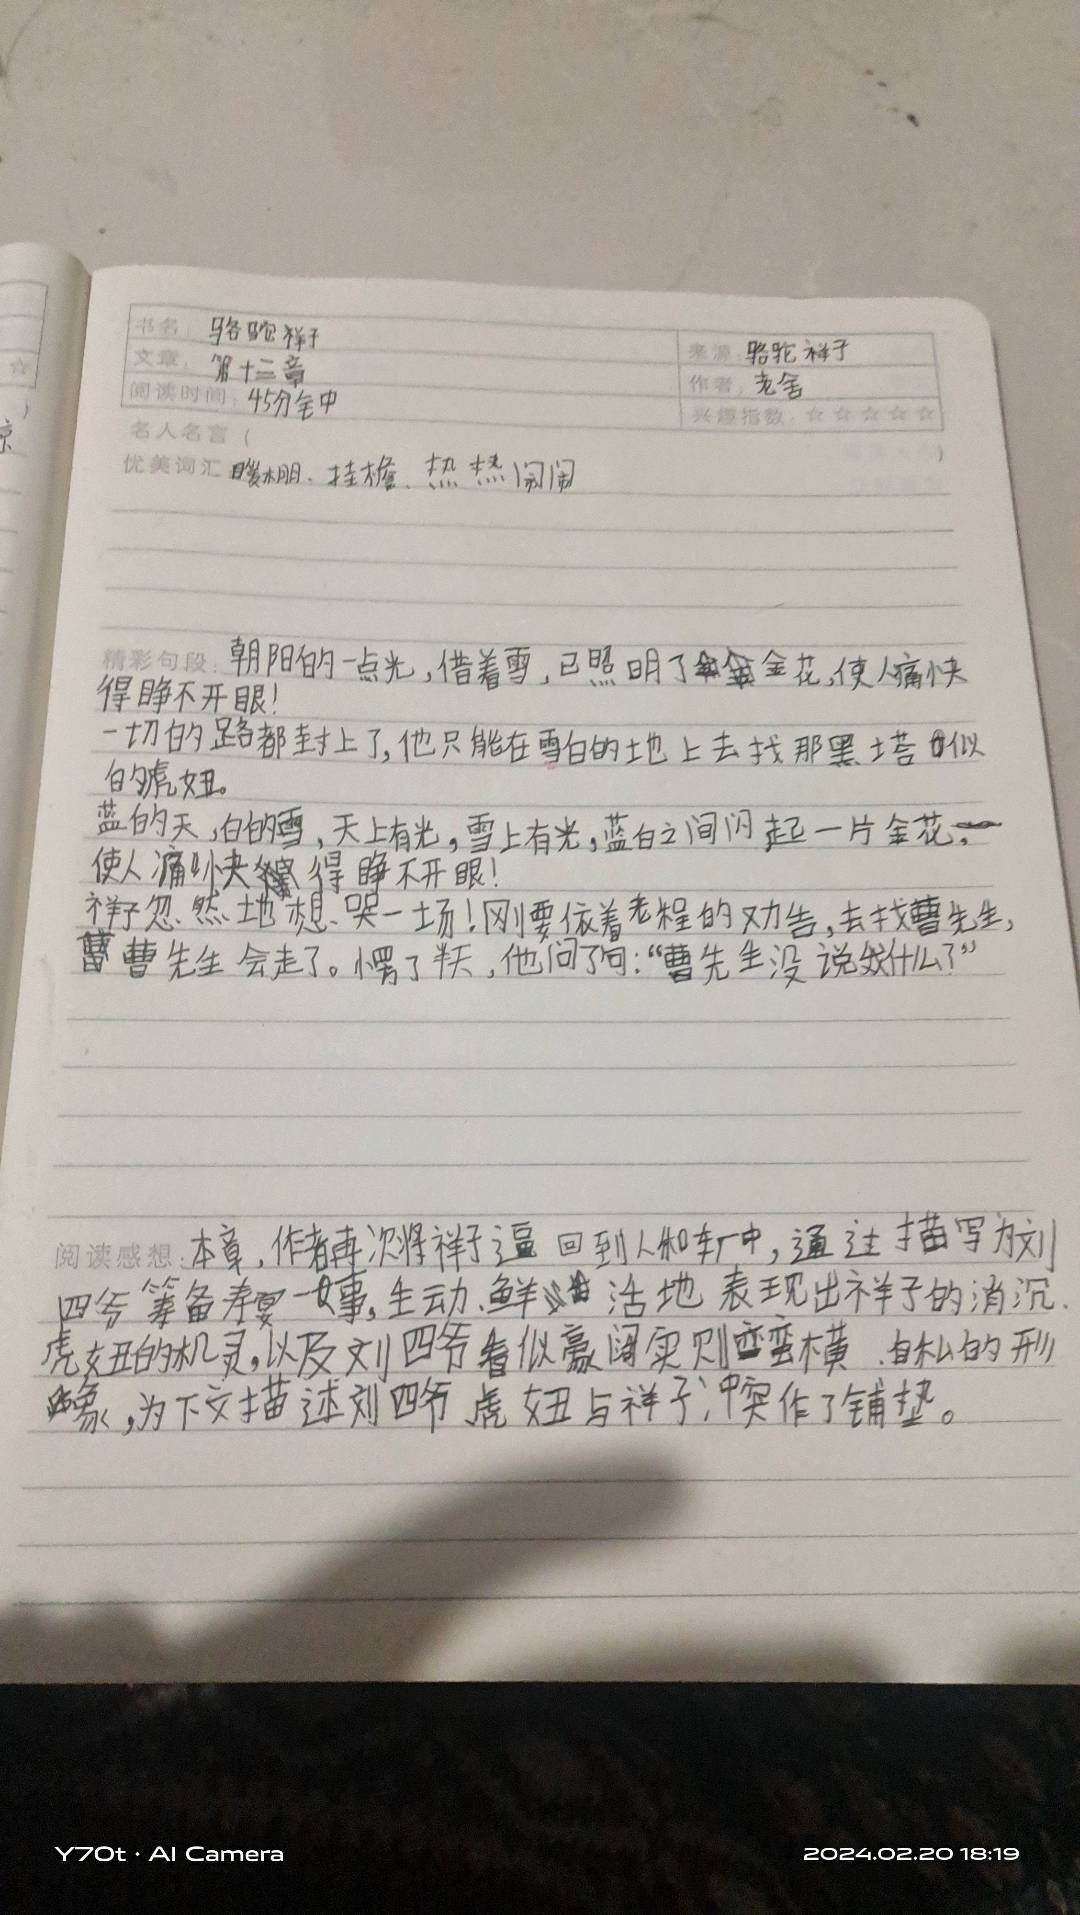 书名：骆驼祥子
来源：骆驼祥子
文章：第十三章
作者：老舍
阅读时间：45分钟
兴趣指数：☆☆☆☆☆
名人名言（ ）
优美词汇 暖棚、挂檐、热热闹闹
精彩句段：朝阳的一点光，借着雪，已照明了金花，使人痛快
得睁不开眼！
一切的路都封上了，他只能在雪白的土地上去找那黑塔似
的虎妞。
蓝的天，白的雪，天上有光，雪上有光，蓝白之间闪起一片金花，
使人痛快得睁不开眼！
祥子忽然地想哭一场！刚要依着老程的劝告，去找曹先生，
曹先生会走了。愣了半天，他问了句：“曹先生没说什么？”
阅读感想：本章，作者再次将祥子逼回到人和车厂中，通过描写为刘
四爷筹备寿宴一事，生动、鲜活地表现出祥子的消沉、
虎妞的机灵，以及刘四爷看似豪阔实则蛮横、自私的形
象，为下文描述刘四爷虎妞与祥子冲突作了铺垫。
Y70t · AI Camera
2024.02.20 18:19